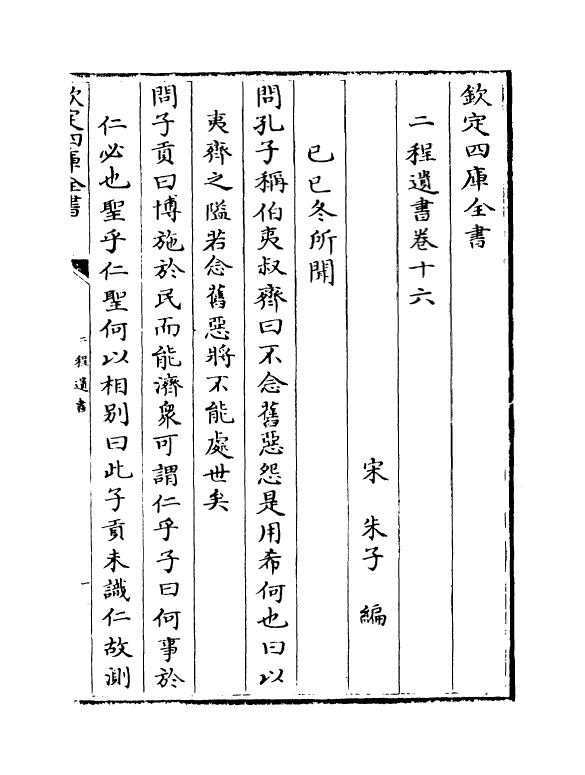 欽定四庫全書
二程遺書卷十六
宋 朱子 編
己巳冬所聞
問孔子稱伯夷叔齊曰不念舊惡怨是用希何也曰以
夷齊之隘若念舊惡將不能處世矣
問子貢曰博施於民而能濟衆可謂仁乎子曰何事於
仁必也聖乎仁聖何以相别曰此子貢未識仁故測
欽定四庫全書
二程遺書
一